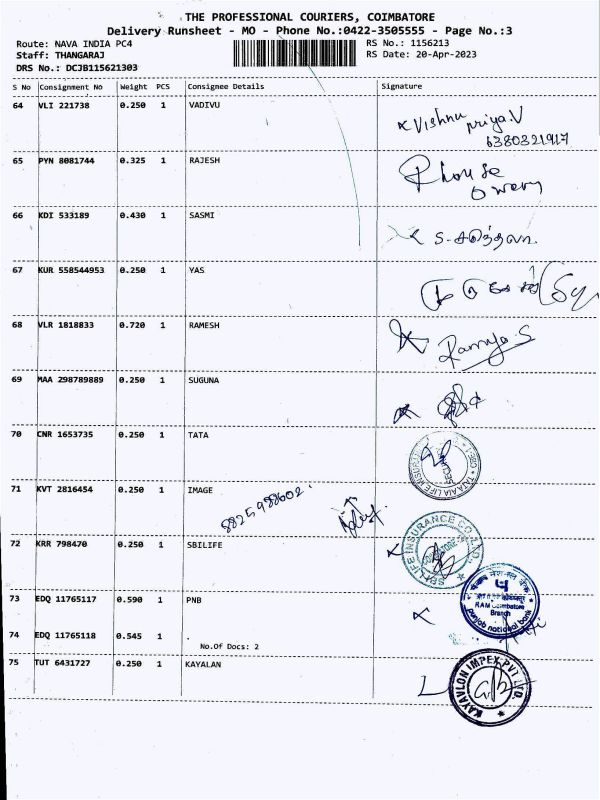 THE PROFESSIONAL COURIERS, COIMBATORE
Delivery Runsheet - MO - Phone No.:0422-3505555 - Page No.:3
Route: NAVA INDIA PC4
RS No.: 1156213
Staff: THANGARAJ
RS Date: 20-Apr-2023
DRS No.: DCJB115621303
S No Consignment No Weight PCS Consignee Details Signature
64 VLI 221738 0.250 1 VADIVU
Vishnu priya.V
6380321917
65 PYN 8081744 0.325 1 RAJESH
house
owner
66 KDI 533189 0.430 1 SASMI
67 KUR 558544953 0.250 1 YAS
68 VLR 1818833 0.720 1 RAMESH
Ramya.S
69 MAA 298789889 0.250 1 SUGUNA
70 CNR 1653735 0.250 1 TATA
71 KVT 2816454 0.250 1 IMAGE
72 KRR 798470 0.250 1 SBILIFE
73 EDQ 11765117 0.590 1 PNB
RAM Coimbatore
Branch
punjab national bank
74 EDQ 11765118 0.545 1
No.Of Docs: 2
75 TUT 6431727 0.250 1 KAYALAN